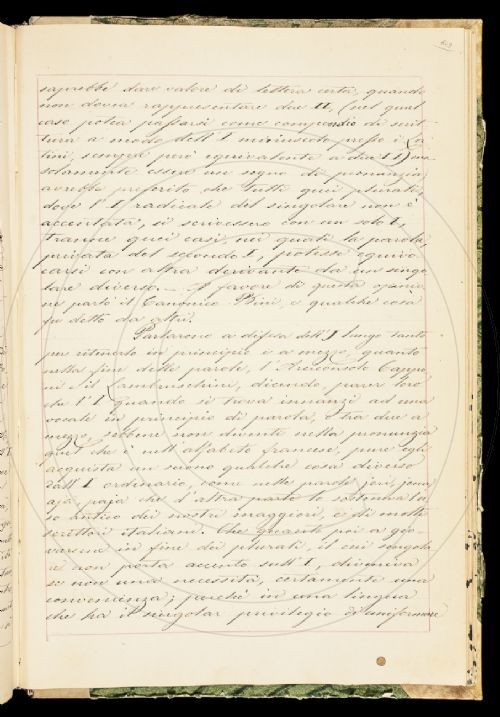 saprebbe dare valore di lettera certa, quando
non dovea rappresentare due II, (nel qual
caso potea passarsi come compendio di scrit-
tura a modo dell'I minuscolo presso i La-
tini, sempre però equivalente a due I I) ma
solamente essere un segno di pronunzia;
avrebbe preferito che tutti quei plurali,
dove l'I radicale del singolare non è
accentata, si scrivessero con un solo I,
tranne quei casi nei quali la parola,
privata del secondo I, potesse equivo-
carsi con altra derivante da un singo-
lare diverso. — A favore di questa opinio-
ne parlò il Canonico Bini, e qualche cosa
fu detto da altri.
Parlarono a difesa dell'J lungo tanto
per ritenerlo in principio e a mezzo, quanto
nella fine delle parole, l'Arciconsolo Cappo-
ni e il Lambruschini, dicendo, parer loro
che l'I quando si trova innanzi ad una
vocale in principio di parola, o tra due a
mezzo, sebbene non diventi nella pronunzia
quel che è nell'alfabeto francese, pure egli
acquista un suono qualche cosa diverso
dall'I ordinario, come nelle parole jeri,
aja, paja che d'altra parte lo sosteneva l'u-
so antico dei nostri maggiori, e di molti
scrittori italiani. Che quanto poi a gio-
varsene in fine dei plurali, il cui singola-
re non porta accento sull'I, diveniva
se non una necessità, certamente una
convenienza; perchè in una lingua
che ha il singolar privilegio di uniformare